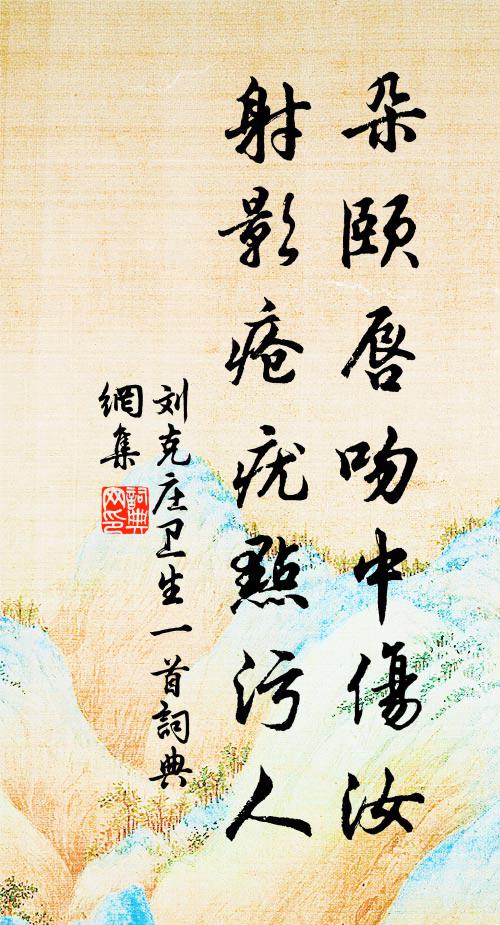 朵颐唇吻中傷汝
射影疮疣點污人
刘克庄卫生一首詞典
網集
詞典
网印